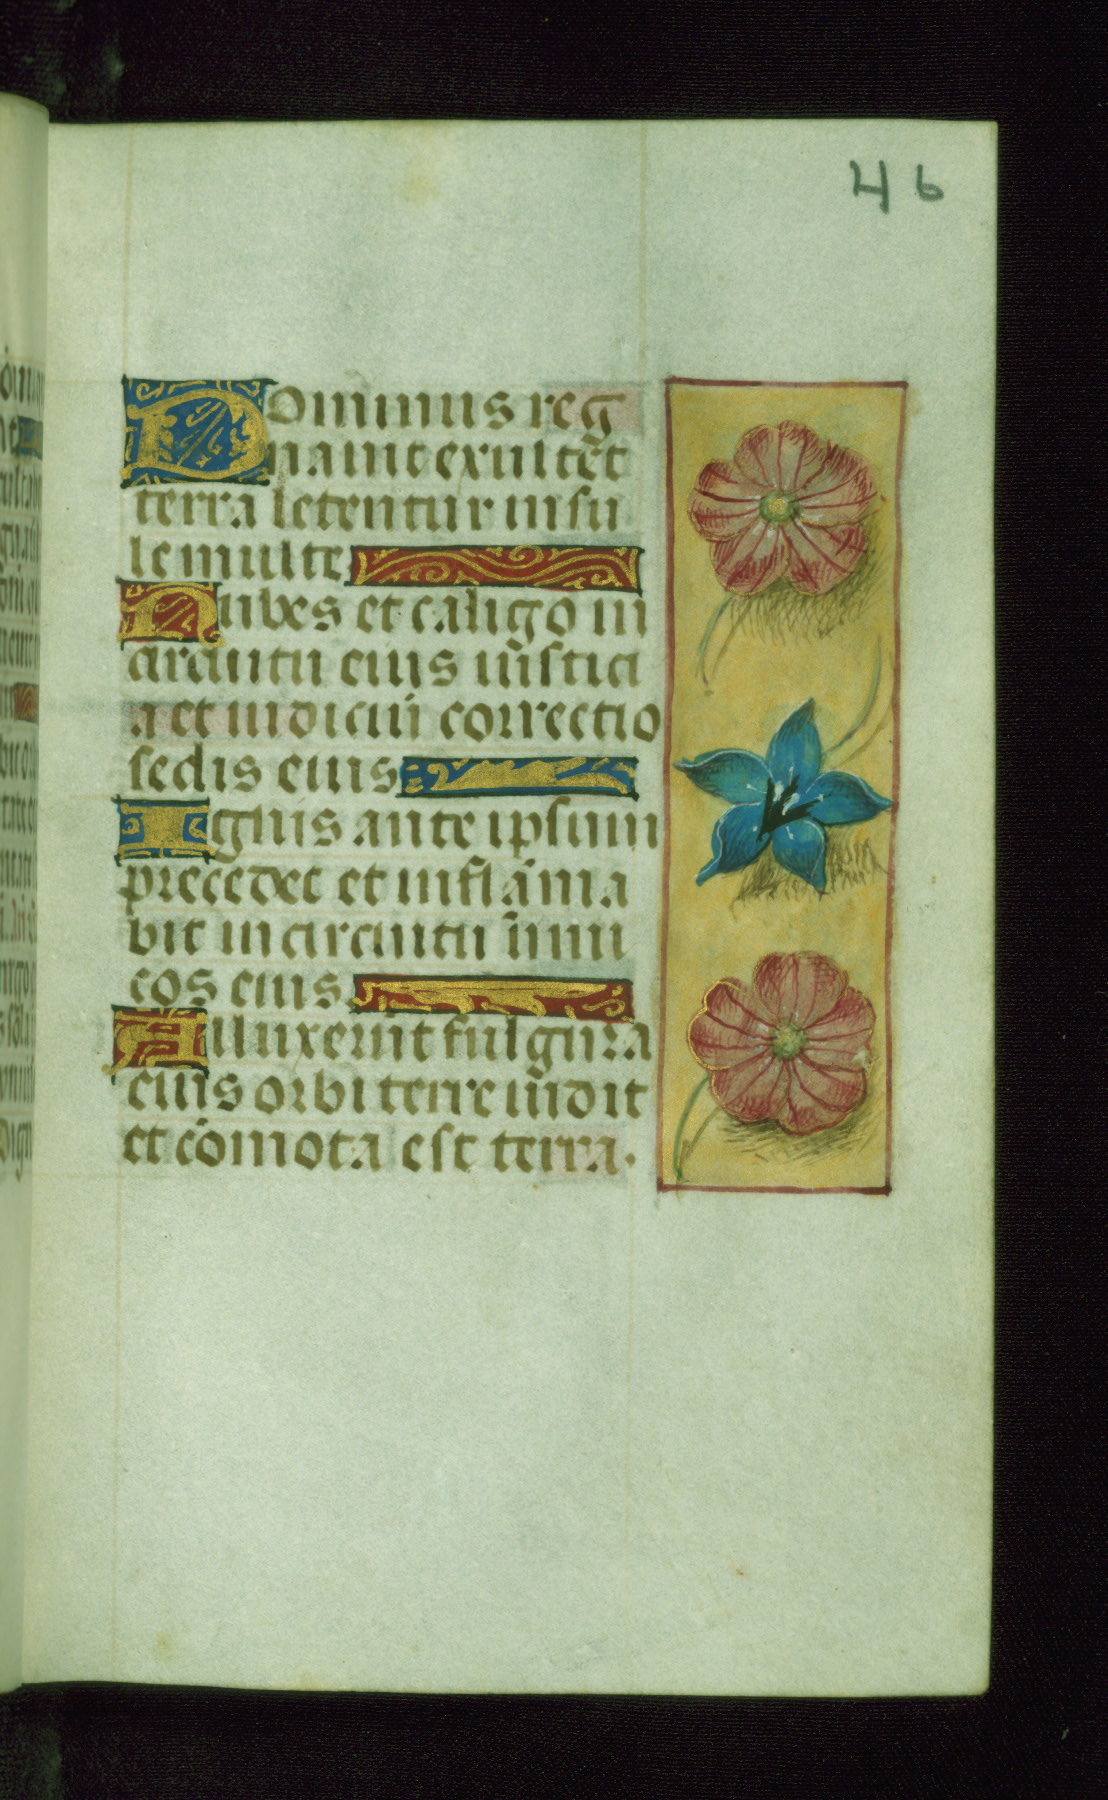 46
Dominus reg
nauit exultet
terra letentur insu
le multe
Nubes et caligo in
circuitu eius iusticia
a et iudiciū correctio
sedis eius
Ignis ante ipsum
precedet et inflāma
bit in circuitu inimi
cos eius
Alluxerūt fulgura
eius orbi terre uidit
et cōmota est terra.